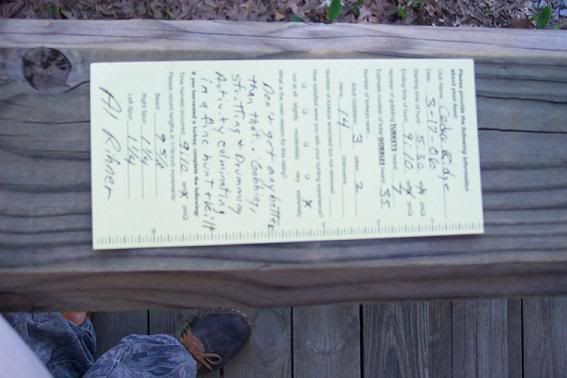 Please provide the following information
about your hunt:
Club Name: Cedar Ridge
Date: 3-17-06
Starting time of hunt: 5:30
Ending time of hunt: 9:10
Number of gobbling TURKEYS heard: 4
Estimate number of total GOBBLES heard: 35
Number of turkeys seen:
Adult Gobblers: 3 Jakes: 2
Hens: 14 Unknowns:
Number of turkeys wounded but not retrieved:
How satisfied were you with your hunting experience?
not at all slightly moderately very extremely
X
What is the main reason for this rating?
Don't get any better
than that. Gobbling,
strutting & Drumming
Activity culminating
in a fine hunt & kill
If you harvested a turkey, complete the following:
Time harvested: 9:10
Please record lengths in 1/16 inch increments
Beard: 9 3/8
Right Spur: 1 1/4
Left Spur: 1 1/4
Al Rihner